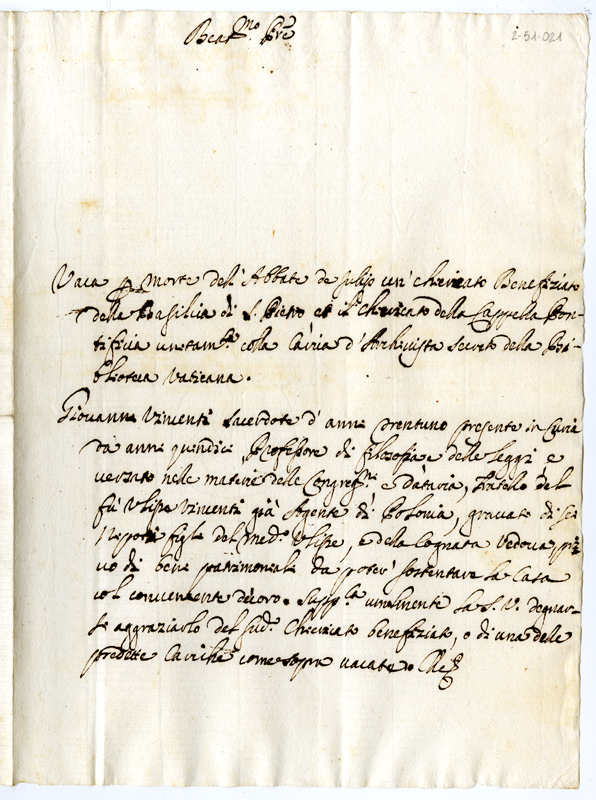 2-51-021
Beat.mo Pre
Vaca p morte dell'Abbate de Julijs un' chiericato Benefiziato
della Basilica di S. Pietro et il chiericato della Cappella Pon-
tificia unitam.te cola Carica d'Archivista Secreto della Bi-
blioteca Vaticana.
Giovanni Vincenti Sacerdote d'anni trentuno presente in Curia
da anni quindici, Professore di filosofia e delle leggi e
versato nelle materie delle Congreg.ni e Dataria, fratello del
fù Ulisse Vincenti già Agente di Polonia, gravato di sei
Nepoti figli del med.o Ulisse, e della Cognata Vedova, pri-
vo di beni patrimoniali da poter' sostentare la Casa
col conveniente decoro. Supp.ca umilmente la S. V. degnar-
si aggraziarlo del sud.o Chiericato benefiziato, o di una delle
predette Cariche come sopra vacate.